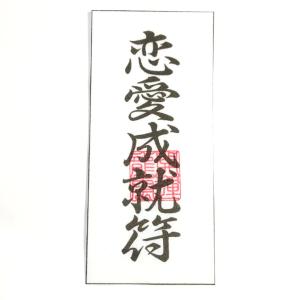 恋愛成就符